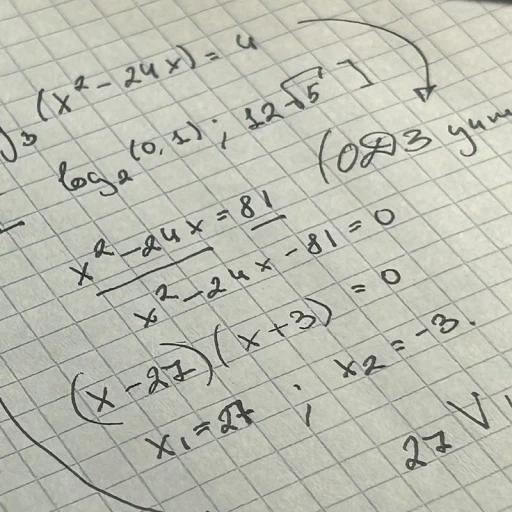 )₃ (x² - 24x) = 4
log₂(0,1); 12√5]
(ОДЗ учит
x² - 24x = 81
x² - 24x - 81 = 0
(x - 27)(x + 3) = 0
x₁ = 27; x₂ = -3.
27 V